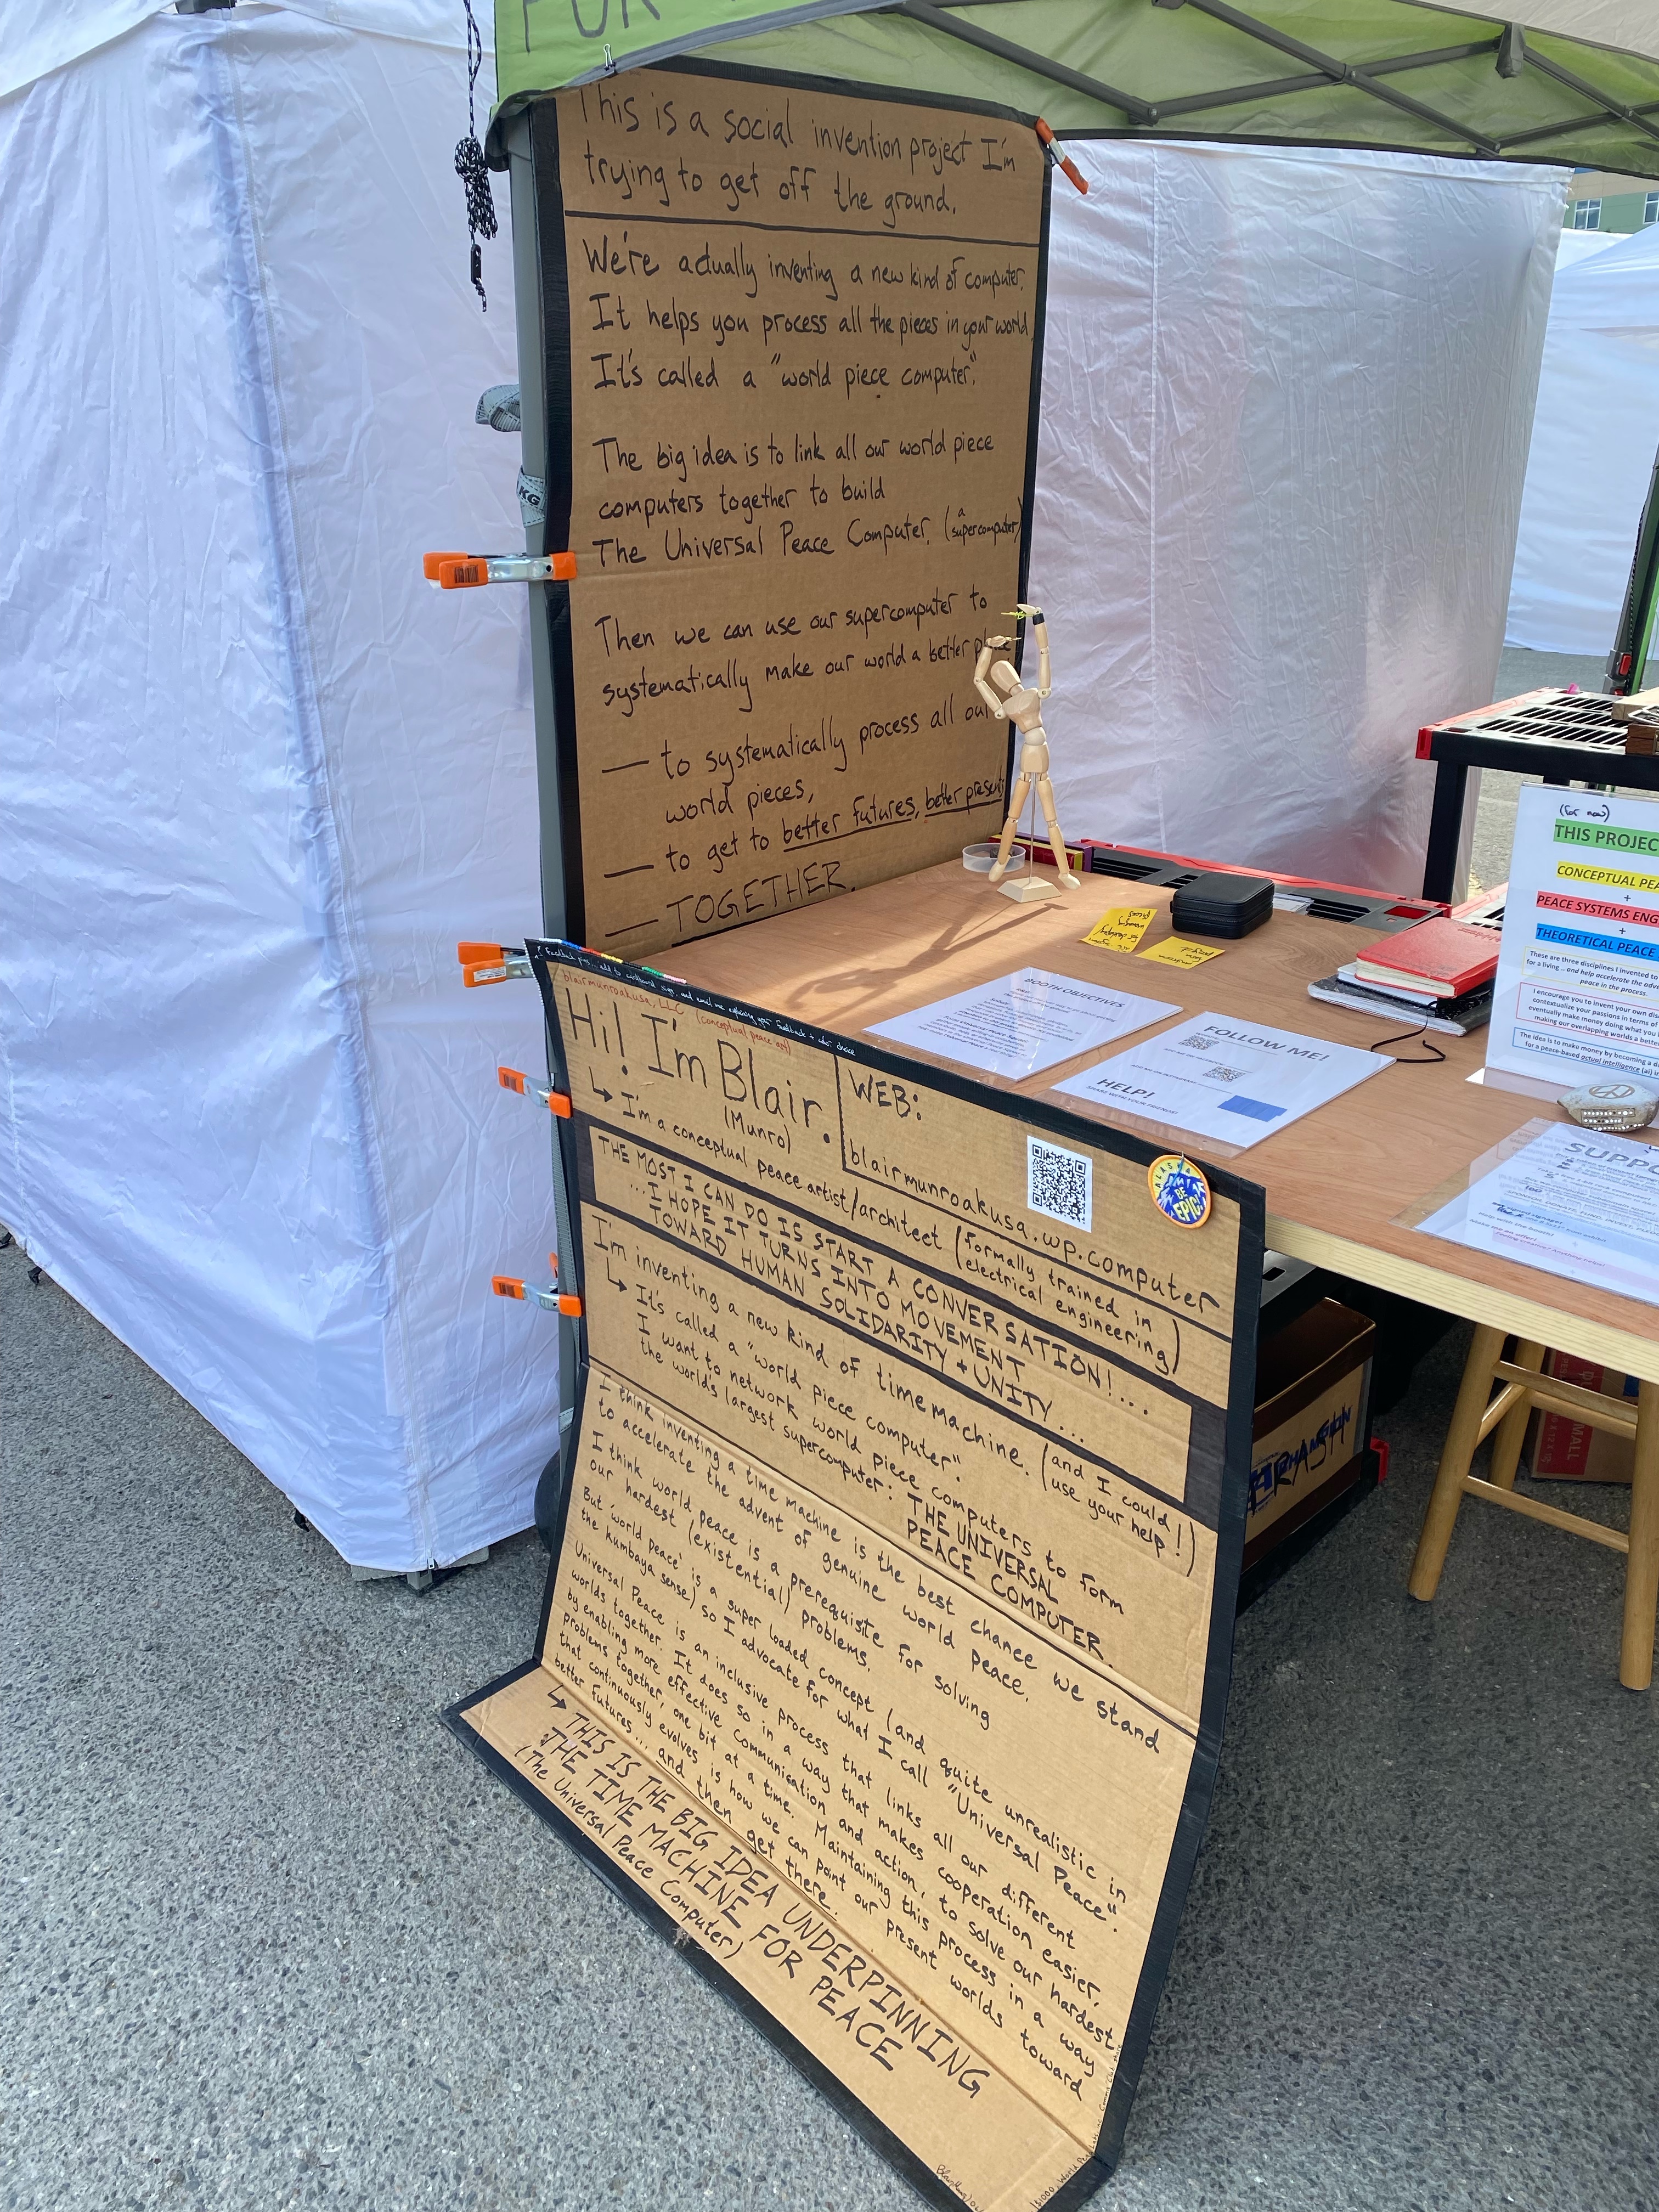 FOR
This is a social invention project I'm
trying to get off the ground.
We're actually inventing a new kind of computer.
It helps you process all the pieces in your world.
It's called a "world piece computer".
The big idea is to link all our world piece
computers together to build
The Universal Peace Computer. (a supercomputer)
Then we can use our supercomputer to
systematically make our world a better
— to systematically process all our
world pieces,
— to get to better futures, better
— TOGETHER.
KG
blairmunroakusa, LLC (conceptual peace art)
Hi! I'm Blair.
(Munro)
↳ I'm a conceptual peace artist/architect (formally trained in
electrical engineering)
WEB:
blairmunroakusa.wp.computer
ALASKA
BE
EPIC!
THE MOST I CAN DO IS START A CONVERSATION!...
...I HOPE IT TURNS INTO MOVEMENT
TOWARD HUMAN SOLIDARITY + UNITY...
I'm inventing a new kind of time machine. (and I could
use your help!)
↳ It's called a "world piece computer".
I want to network world piece computers to form
the world's largest supercomputer: THE UNIVERSAL
PEACE COMPUTER.
I think inventing a time machine is the best chance we stand
to accelerate the advent of genuine world peace.
I think world peace is a prerequisite for solving
our hardest (existential) problems.
But 'world peace' is a super loaded concept (and quite unrealistic in
the kumbaya sense) so I advocate for what I call "Universal Peace".
Universal Peace is an inclusive process that links all our different
worlds together. It does so in a way that makes cooperation easier,
by enabling more effective communication and action, to solve our hardest
problems together, one bit at a time. Maintaining this process in a way
that continuously evolves is how we can point our present worlds toward
better futures... and then get there.
↳ THIS IS THE BIG IDEA UNDERPINNING
THE TIME MACHINE FOR PEACE
(The Universal Peace Computer)
BOOTH OBJECTIVES
FOLLOW ME!
HELP!
SHARE WITH YOUR FRIENDS!
(for now)
THIS PROJEC
CONCEPTUAL PEA
+
PEACE SYSTEMS ENG
+
THEORETICAL PEACE
These are three disciplines I invented to
for a living... and help accelerate the adve
peace in the process.
I encourage you to invent your own dis
contextualize your passions in terms of
eventually make money doing what you
making our overlapping worlds a bette
The idea is to make money by becoming a d
for a peace-based actual intelligence (ai)
SUPPO